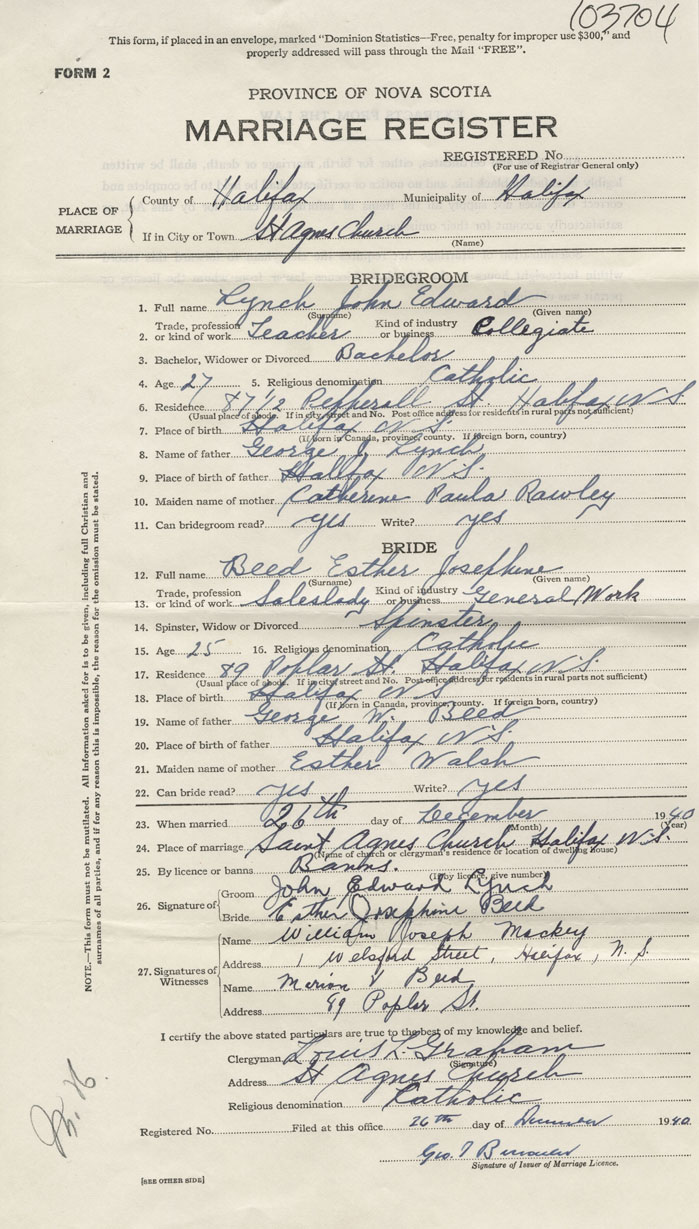 103704
This form, if placed in an envelope, marked "Dominion Statistics—Free, penalty for improper use $300," and
properly addressed will pass through the Mail "FREE".
FORM 2
PROVINCE OF NOVA SCOTIA
MARRIAGE REGISTER
REGISTERED No.
(For use of Registrar General only)
PLACE OF MARRIAGE
County of Halifax Municipality of Halifax
If in City or Town St Agnes Church
(Name)
BRIDEGROOM
1. Full name Lynch John Edward
(Surname) (Given name)
2. Trade, profession or kind of work Teacher Kind of industry or business Collegiate
3. Bachelor, Widower or Divorced Bachelor
4. Age 27 5. Religious denomination Catholic
6. Residence 87 1/2 Pepperall St. Halifax N.S.
(Usual place of abode. If in city street and No. Post office address for residents in rural parts not sufficient)
7. Place of birth Halifax N.S.
(If born in Canada, province, county. If foreign born, country)
8. Name of father George J. Lynch
9. Place of birth of father Halifax N.S.
10. Maiden name of mother Catherine Paula Rawley
11. Can bridegroom read? yes Write? yes
BRIDE
12. Full name Beed Esther Josephine
(Surname) (Given name)
13. Trade, profession or kind of work Saleslady Kind of industry or business General Work
14. Spinster, Widow or Divorced Spinster
15. Age 25 16. Religious denomination Catholic
17. Residence 89 Poplar St. Halifax N.S.
(Usual place of abode. If in city street and No. Post office address for residents in rural parts not sufficient)
18. Place of birth Halifax N.S.
(If born in Canada, province, county. If foreign born, country)
19. Name of father George W. Beed
20. Place of birth of father Halifax N.S.
21. Maiden name of mother Esther Walsh
22. Can bride read? yes Write? yes
23. When married 26th day of December 1940
(Month) (Year)
24. Place of marriage Saint Agnes Church Halifax N.S.
(Name of church or clergyman's residence or location of dwelling house)
25. By licence or banns Banns.
(If by licence, give number)
26. Signature of
Groom John Edward Lynch
Bride Esther Josephine Beed
27. Signatures of Witnesses
Name William Joseph Mackey
Address 1 Welsford Street, Halifax, N.S.
Name Marion V Beed
Address 89 Poplar St.
I certify the above stated particulars are true to the best of my knowledge and belief.
Clergyman Louis L. Graham
(Signature)
Address St Agnes Church
Religious denomination Catholic
Registered No. Filed at this office 26th day of December 1940.
Geo. T
Signature of Issuer of Marriage Licence.
[SEE OTHER SIDE]
NOTE.—This form must not be mutilated. All information asked for is to be given, including full Christian and
surnames of all parties, and if for any reason this is impossible, the reason for the omission must be stated.